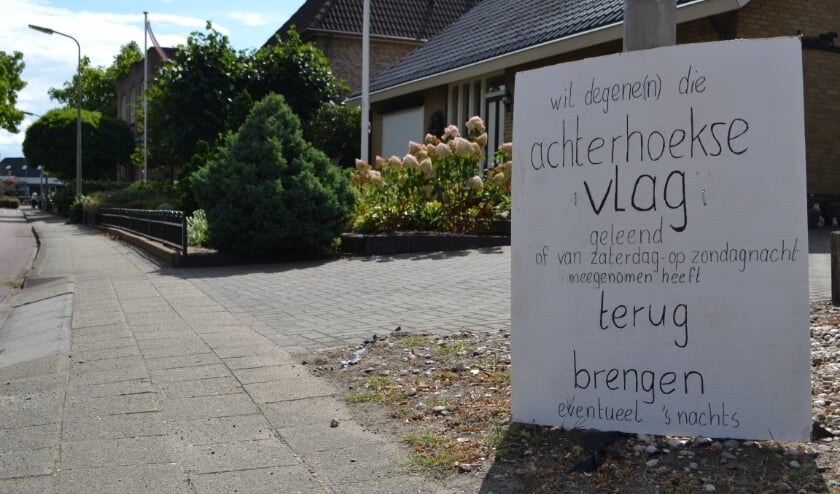 wil degene(n) die
achterhoekse
vlag
geleend
of van zaterdag-op zondagnacht
meegenomen heeft
terug
brengen
eventueel 's nachts